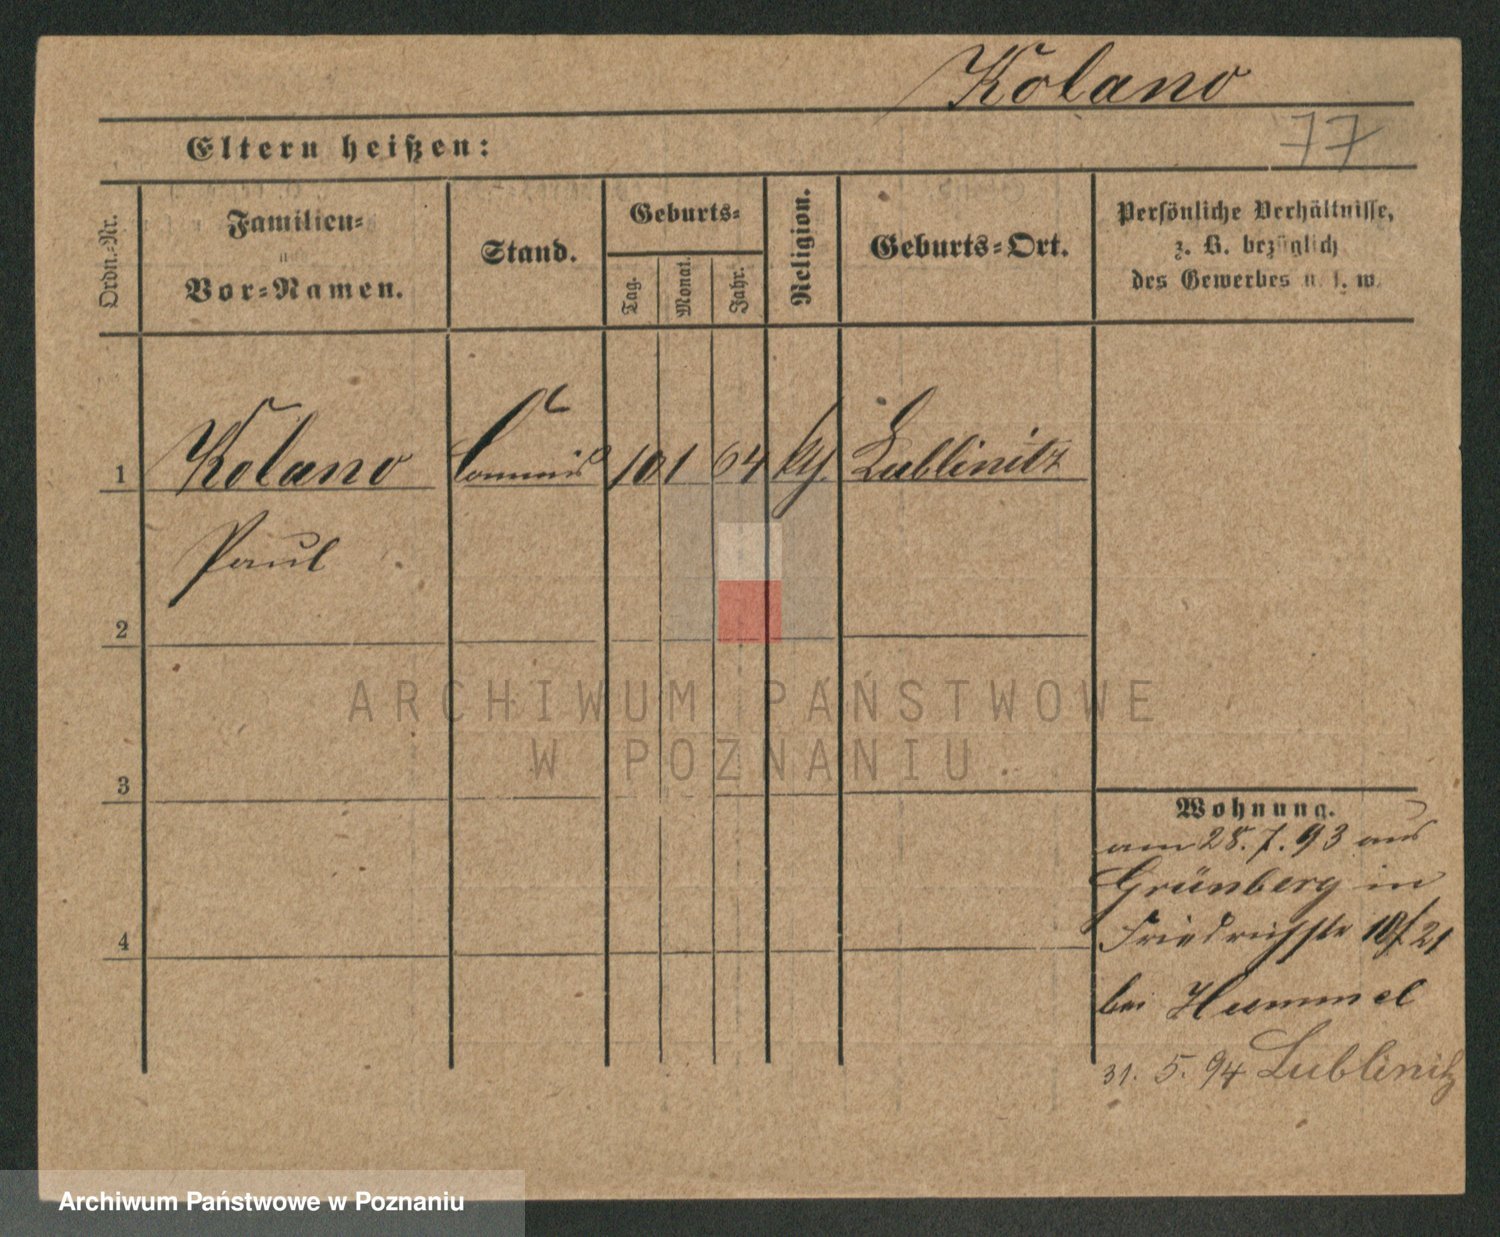 Kolano
77
Eltern heißen:
Ordn.-Nr.
Familien-
u
Vor-Namen.
Stand.
Geburts-
Tag.
Monat.
Jahr.
Religion.
Geburts-Ort.
Persönliche Verhältnisse,
z. B. bezüglich
des Gewerbes u. s. w.
1 Kolano Commis 10 1 64 Lublinitz
Paul
2
3
4
Wohnung.
am 28. 7. 93 aus
Grünberg in
Friedrichstr 21
bei Hummel
31. 5. 94 Lublinitz
ARCHIWUM PAŃSTWOWE
W POZNANIU
Archiwum Państwowe w Poznaniu